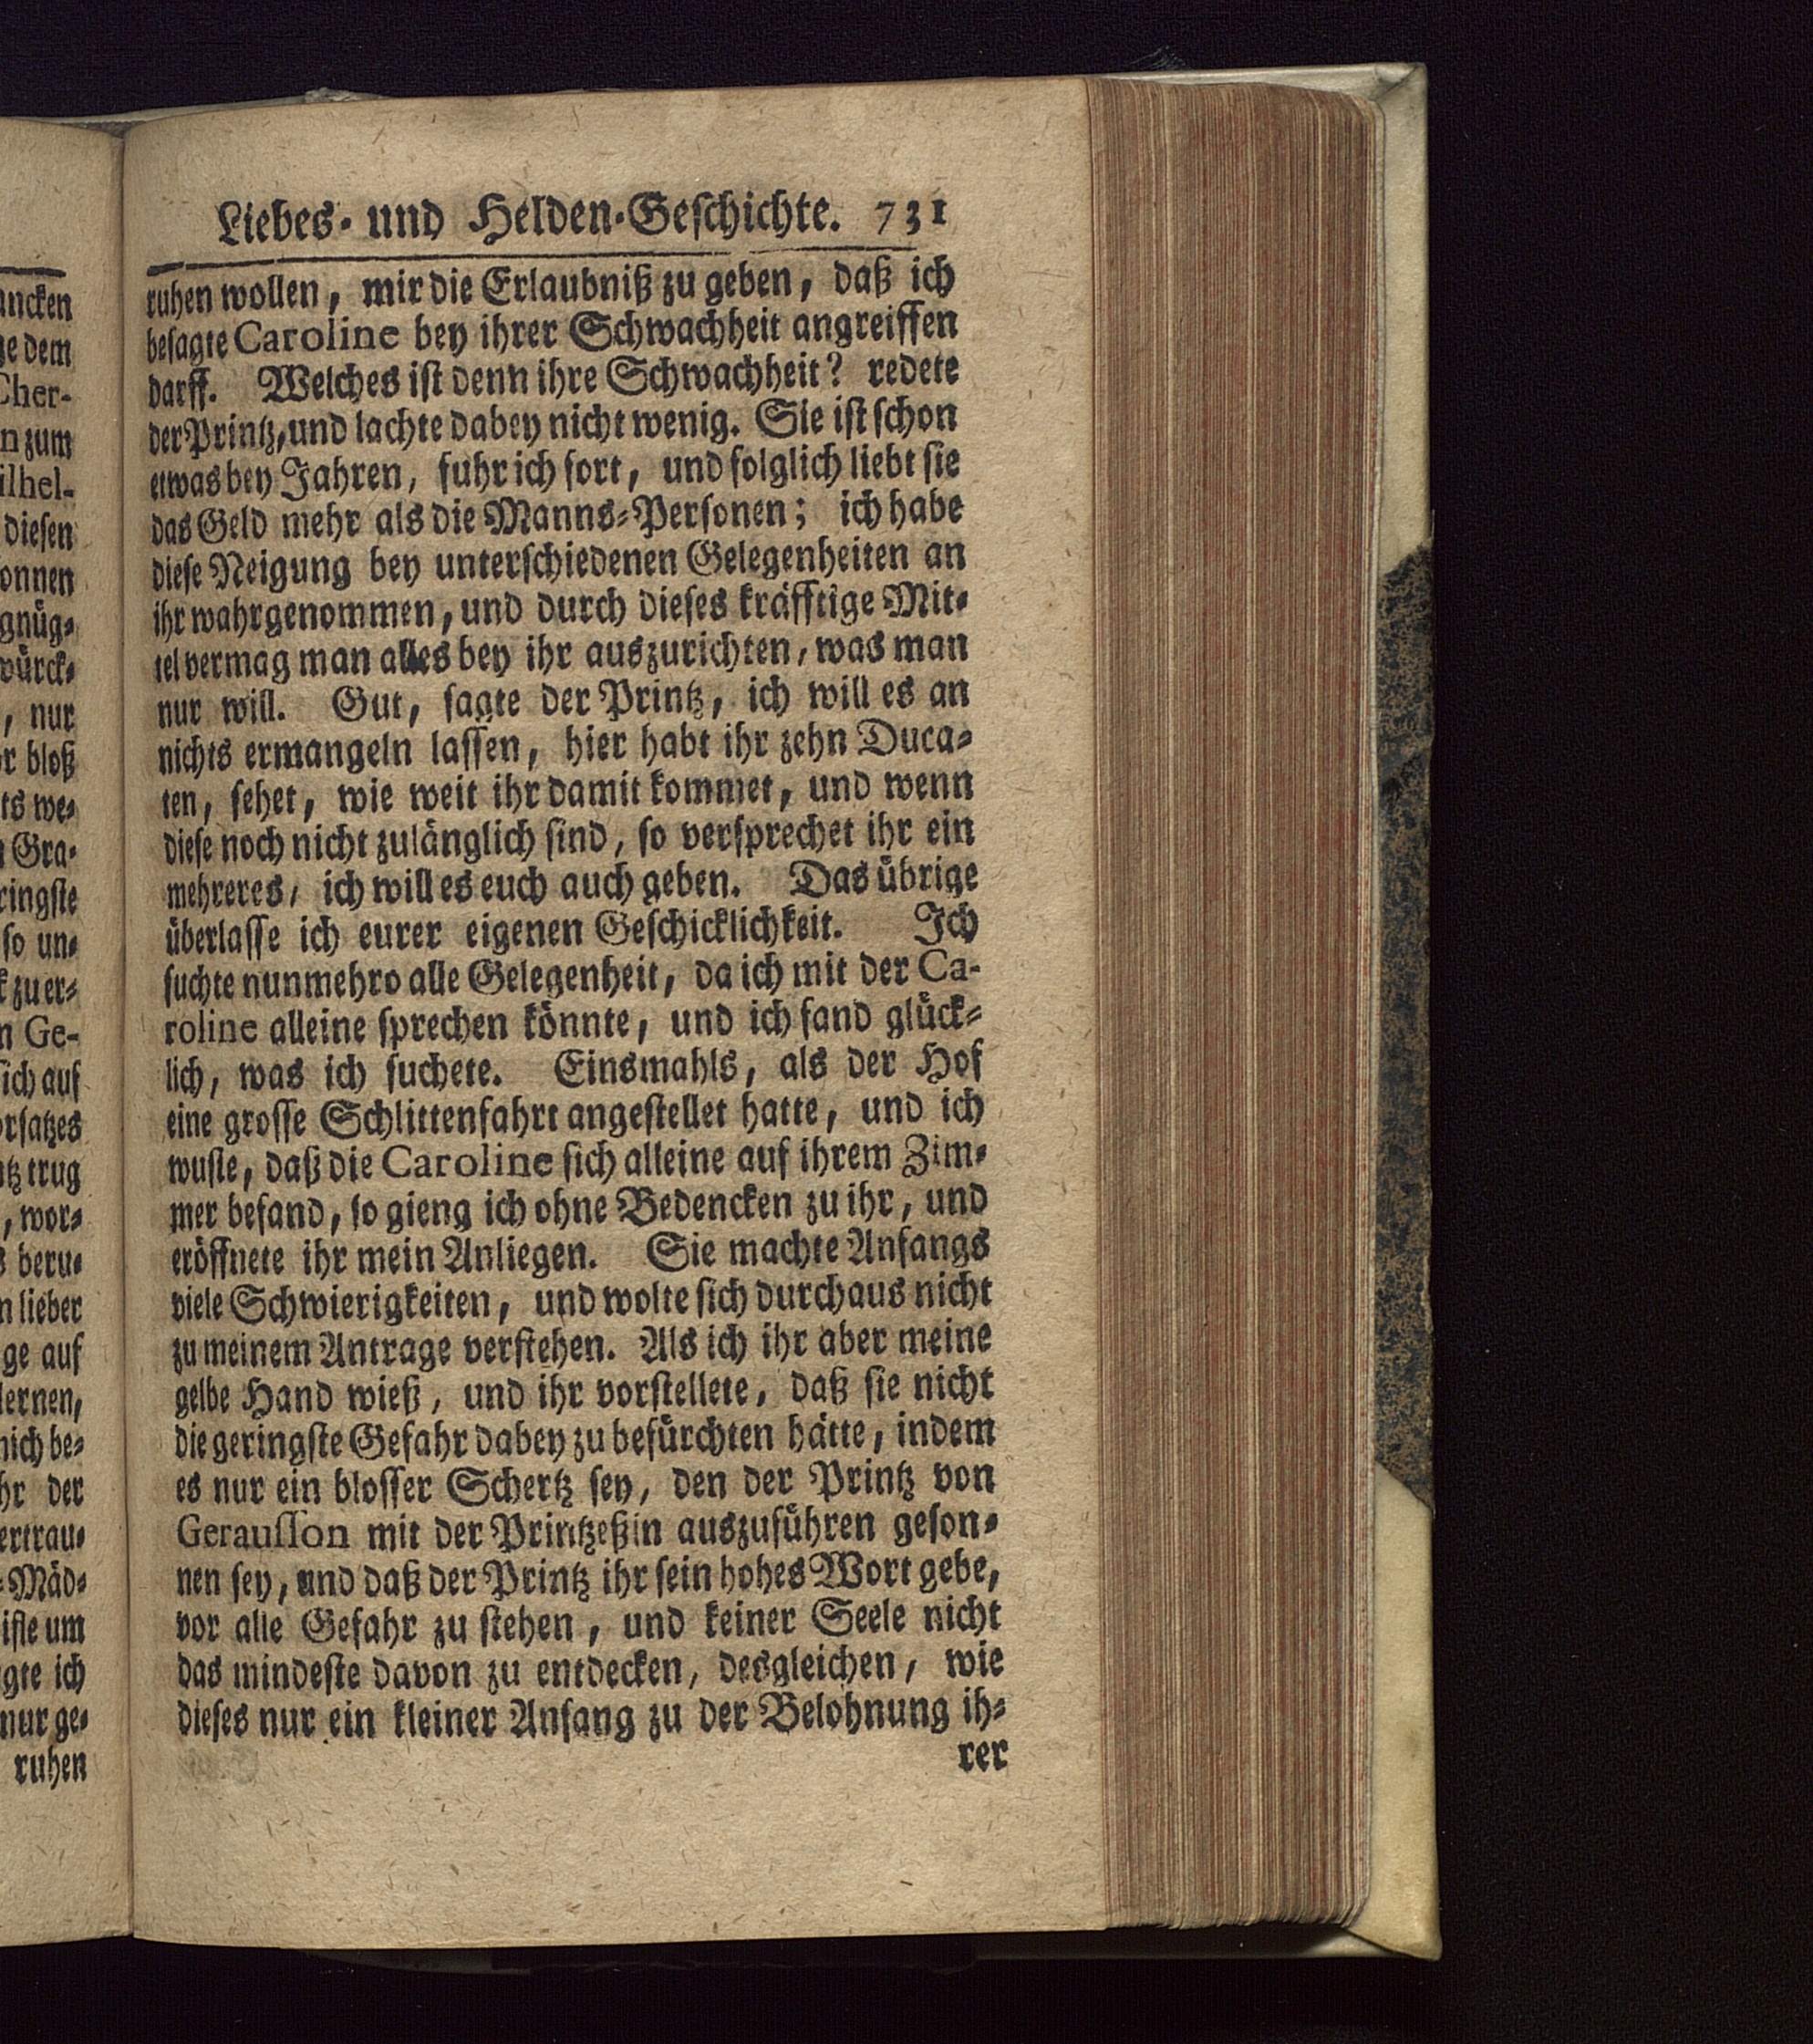 Liebes- und Helden-Geschichte. 731
ruhen wollen, mir die Erlaubniß zu geben, daß ich
besagte Caroline bey ihrer Schwachheit angreiffen
darff. Welches ist denn ihre Schwachheit? redete
der Printz, und lachte dabey nicht wenig. Sie ist schon
etwas bey Jahren, fuhr ich fort, und folglich liebt sie
das Geld mehr als die Manns-Personen; ich habe
diese Neigung bey unterschiedenen Gelegenheiten an
ihr wahrgenommen, und durch dieses kräfftige Mit-
tel vermag man alles bey ihr auszurichten, was man
nur will. Gut, sagte der Printz, ich will es an
nichts ermangeln lassen, hier habt ihr zehn Duca-
ten, sehet, wie weit ihr damit kommet, und wenn
diese noch nicht zulänglich sind, so versprechet ihr ein
mehreres, ich will es euch auch geben. Das übrige
überlasse ich eurer eigenen Geschicklichkeit. Ich
suchte nunmehro alle Gelegenheit, da ich mit der Ca-
roline alleine sprechen könnte, und ich fand glück-
lich, was ich suchete. Einsmahls, als der Hof
eine grosse Schlittenfahrt angestellet hatte, und ich
wuste, daß die Caroline sich alleine auf ihrem Zim-
mer befand, so gieng ich ohne Bedencken zu ihr, und
eröffnete ihr mein Anliegen. Sie machte Anfangs
viele Schwierigkeiten, und wolte sich durchaus nicht
zu meinem Antrage verstehen. Als ich ihr aber meine
gelbe Hand wieß, und ihr vorstellete, daß sie nicht
die geringste Gefahr dabey zu befürchten hätte, indem
es nur ein blosser Schertz sey, den der Printz von
Gerausson mit der Printzeßin auszuführen geson-
nen sey, und daß der Printz ihr sein hohes Wort gebe,
vor alle Gefahr zu stehen, und keiner Seele nicht
das mindeste davon zu entdecken, desgleichen, wie
dieses nur ein kleiner Anfang zu der Belohnung ih-
rer
ruhen